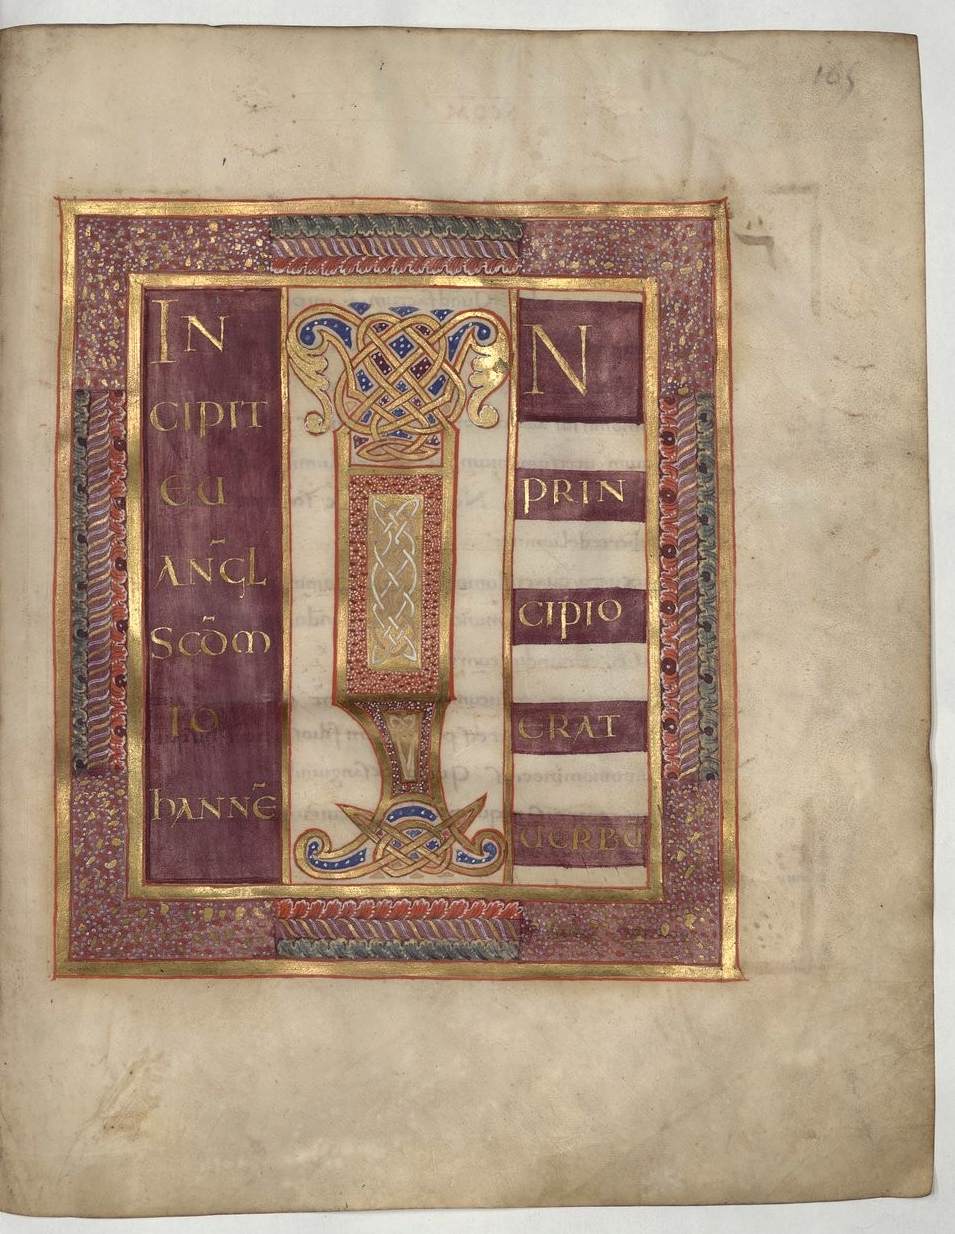 165
IN
CIPIT
EU
ANGL̃
SCD̄M
IO
hANNĒ
I
N
PRIN
CIPIO
ERAT
UERBŪ